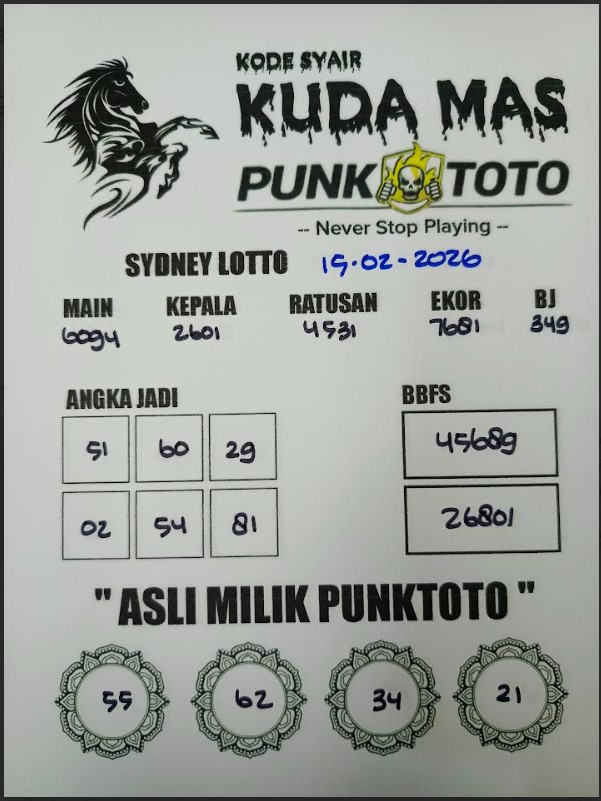 KODE SYAIR
KUDA MAS
PUNK TOTO
-- Never Stop Playing --
SYDNEY LOTTO 15-02-2026
MAIN KEPALA RATUSAN EKOR BJ
6094 2601 4531 7681 349
ANGKA JADI BBFS
51 60 29 45689
02 54 81 26801
" ASLI MILIK PUNKTOTO "
55 62 34 21